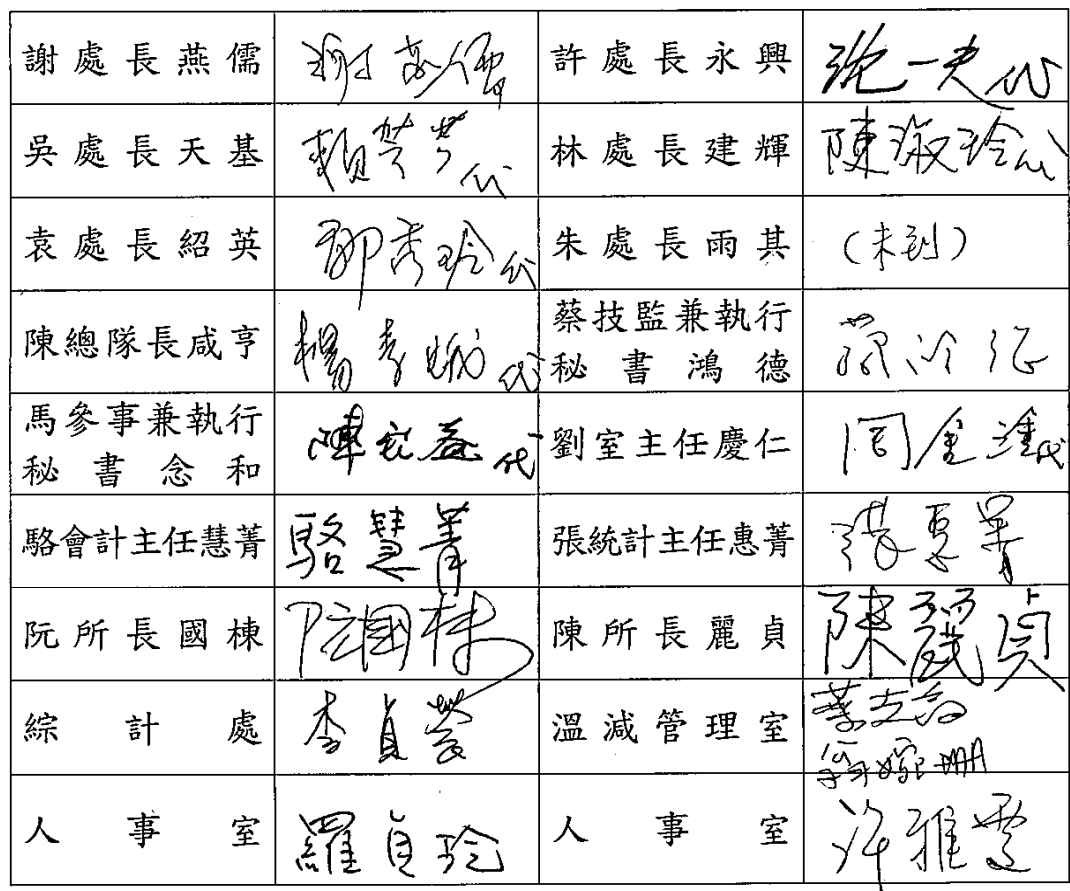 謝處長燕儒 謝燕儒 許處長永興 沈一夫代
吳處長天基 賴 代 林處長建輝 陳淑玲代
袁處長紹英 秀玲代 朱處長雨其 (未到)
陳總隊長咸亨 楊 代 蔡技監兼執行
秘書鴻德
馬參事兼執行
秘書念和 陳 益代 劉室主任慶仁 周金 代
駱會計主任慧菁 駱慧菁 張統計主任惠菁 張惠菁
阮所長國棟 阮國棟 陳所長麗貞 陳麗貞
綜計處 李貞瑩 溫減管理室
人事室 羅貞玲 人事室 許雅雯